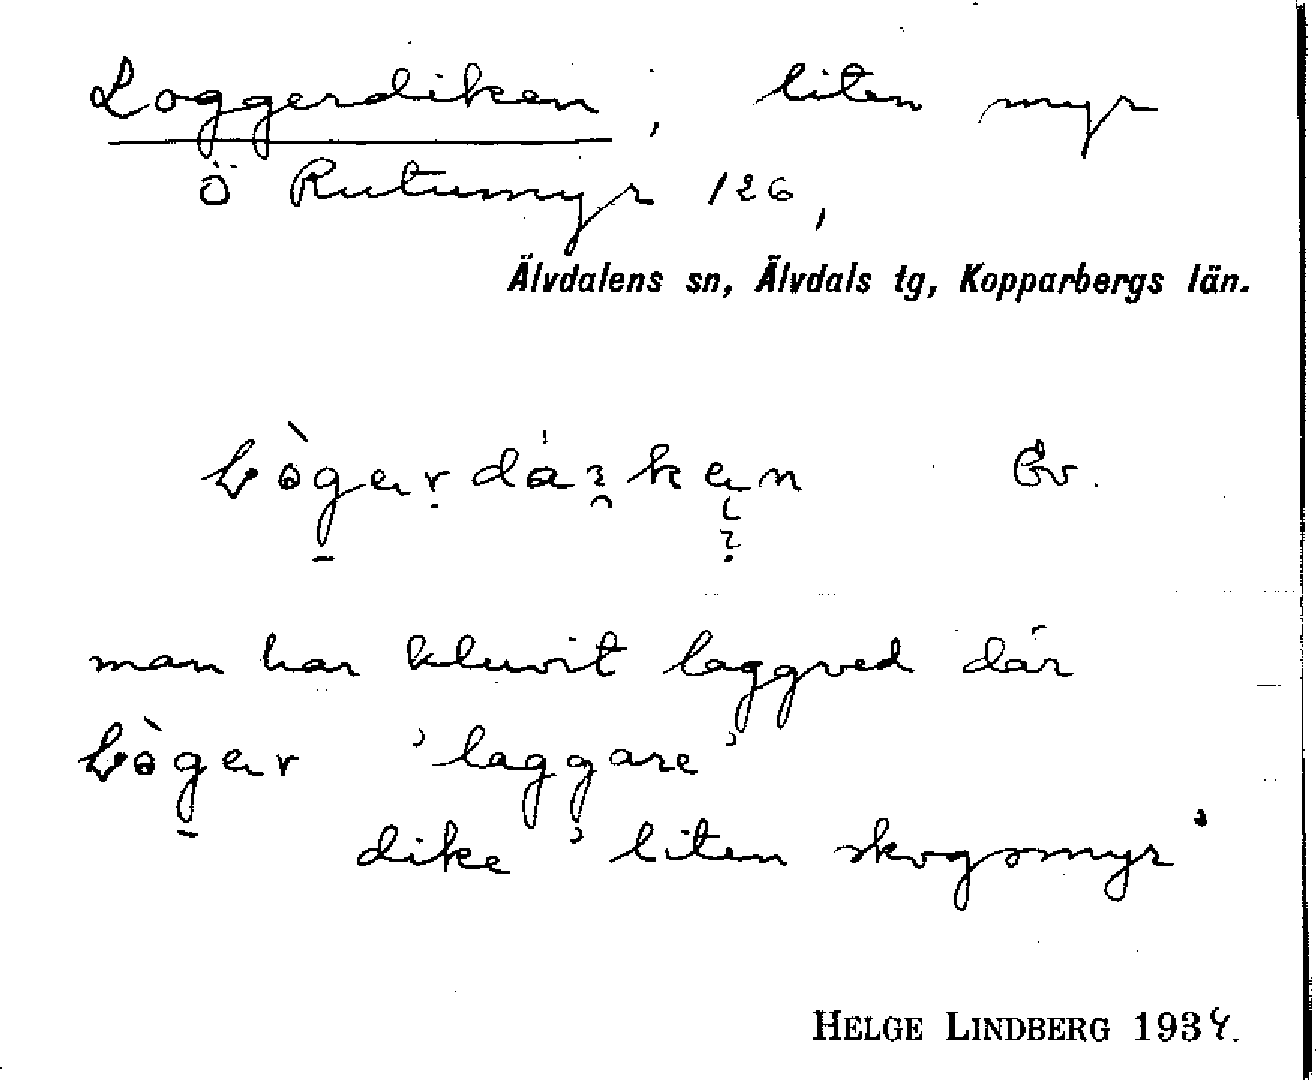 Loggerdiken, liten myr
Ö Rutumyr 126,
Älvdalens sn, Älvdals tg, Kopparbergs län.
Ev.
man har kluvit laggved där
'laggare'
dike 'liten skogsmyr'
HELGE LINDBERG 1934.